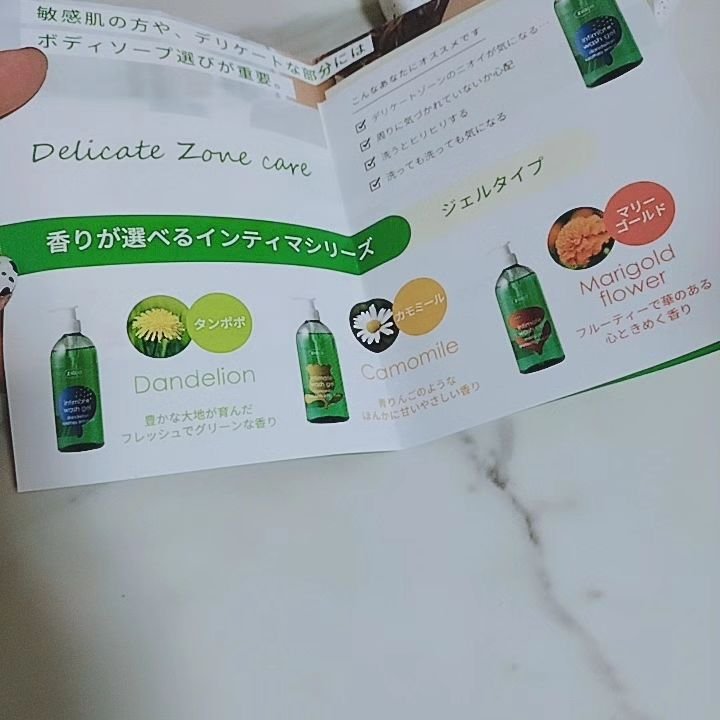 敏感肌の方や、デリケートな部分には
ボディソープ選びが重要。
Delicate Zone care
こんなあなたにオススメです
デリケートゾーンのニオイが気になる…
周りに気づかれていないか心配
洗うとヒリヒリする
洗っても洗っても気になる
intimate
wash gel
dandelion
ジェルタイプ
香りが選べるインティマシリーズ
タンポポ
Dandelion
豊かな大地が育んだ
フレッシュでグリーンな香り
intimate
wash gel
dandelion
カモミール
Camomile
青りんごのような
ほんかに甘いやさしい香り
intimate
wash gel
マリー
ゴールド
Marigold
flower
フルーティーで華のある
心ときめく香り
intimate
wash gel